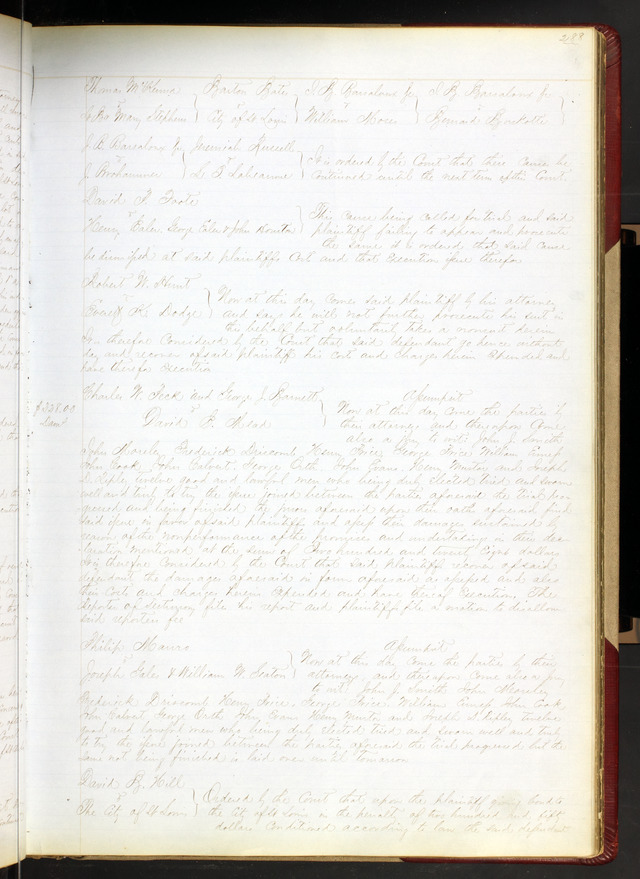 288
Thomas McKenna } Barton Bates } J. B. Barsaloux Jr } J. B. Barsaloux Jr
Mary Stephens } City of St Louis } William } Bernard
J. B. Barsaloux Jr } Jeremiah Russell
} L. T. Labeaume } It is ordered by the Court that these Causes be
continued until the next term of this Court
David
Henry George John } This cause being called for trial and said
plaintiff failing to appear and prosecute
the same it is ordered that said cause
be dismissed at said plaintiffs Cost and that execution issue therefor
Robert W. Hunt
Dodge } Now at this day comes said plaintiff by his attorney
and says he will not further prosecute his suit in
this behalf but voluntarily takes a nonsuit herein
It is therefore Considered by the Court that said defendant go hence without
day and recover of said plaintiff his cost and charges herein expended and
have therefor execution
Charles W. and George J. Barnett } Assumpsit
$228.00
Dam
David Mead
Now at this day come the parties by
their attorneys and thereupon comes
also a jury to wit, John J. Smith,
John Frederick Driscomb Henry Price George Price William
John Cook, John Calvert, George John Evans Henry and Joseph
twelve good and lawful men who being duly elected tried and sworn
well and truly to try the issue joined between the parties aforesaid the trial pro-
gressed and being finished the jurors aforesaid upon their oaths aforesaid find
said issue in favor of said plaintiffs and assess their damages sustained by
reason of the nonperformance of the promises and undertakings in their dec-
laration mentioned at the sum of Two hundred and twenty Eight dollars
It is therefore Considered by the Court that said plaintiffs recover of said
defendant the damages aforesaid in form aforesaid as assessed and also
their Costs and charges herein expended and have thereof Execution. The
Reporter of testimony files his report and plaintiffs file a motion to disallow
said reporters fee
Philip Mauro } Assumpsit
Joseph Gales & William W. Seaton } Now at this day come the parties by their
attorneys and thereupon comes also a jury
to wit: John J. Smith John
Frederick Driscomb Henry Price George Price William John Cook
John Calvert George John Evans Henry and Joseph twelve
good and lawful men who being duly elected tried and sworn well and truly
to try the issue joined between the parties aforesaid the trial progressed but the
same not being finished is laid over until tomorrow
David B. Hill
The City of St Louis } Ordered by the Court that upon the plaintiff giving bond to
the City of St Louis in the penalty of two hundred and fifty
dollars Conditioned according to law the said defendant